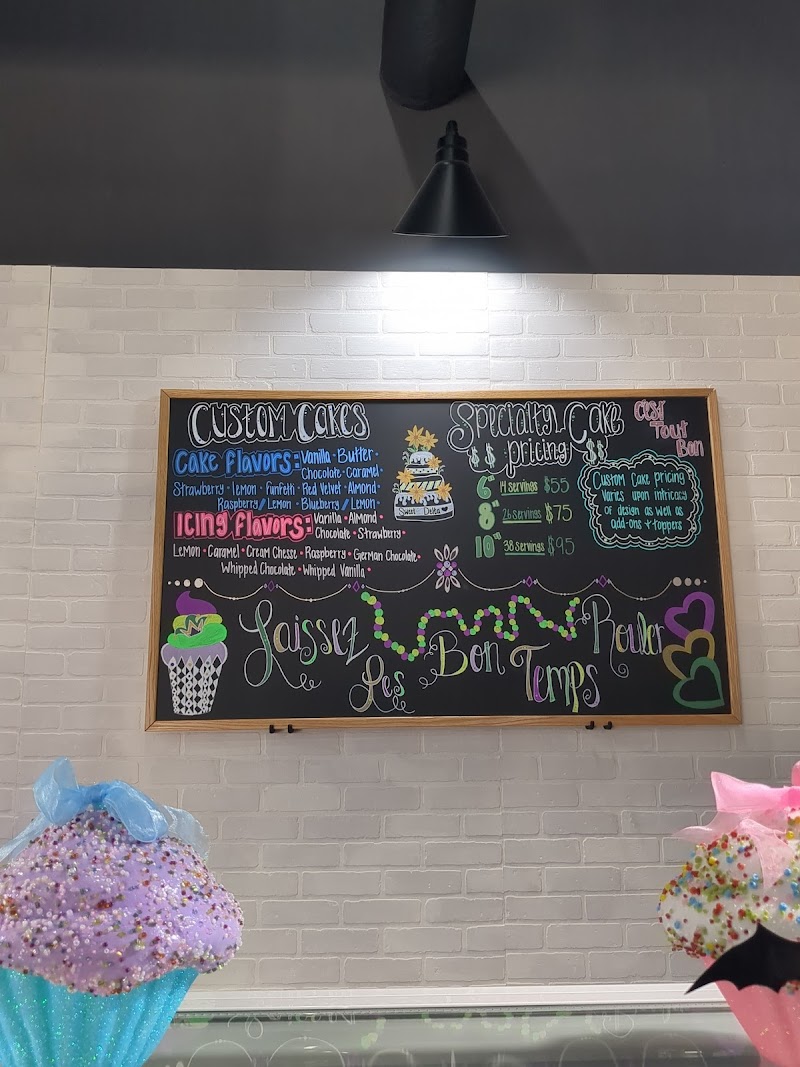 Custom Cakes
Cake Flavors: Vanilla • Butter •
Chocolate • Caramel
Strawberry • Lemon • Funfetti • Red Velvet • Almond
Raspberry/Lemon • Blueberry/Lemon •
Icing Flavors: Vanilla • Almond •
Chocolate • Strawberry •
Lemon • Caramel • Cream Cheese • Raspberry • German Chocolate •
Whipped Chocolate • Whipped Vanilla •
Sweet Delta
Specialty Cake
$$ pricing! $$
6" 14 servings $55
8" 26 servings $75
10" 38 servings $95
C'est
Tout
Bon
Custom Cake pricing
varies upon intricacy
of design as well as
add-ons + toppers
Laissez Les Bon Temps Rouler